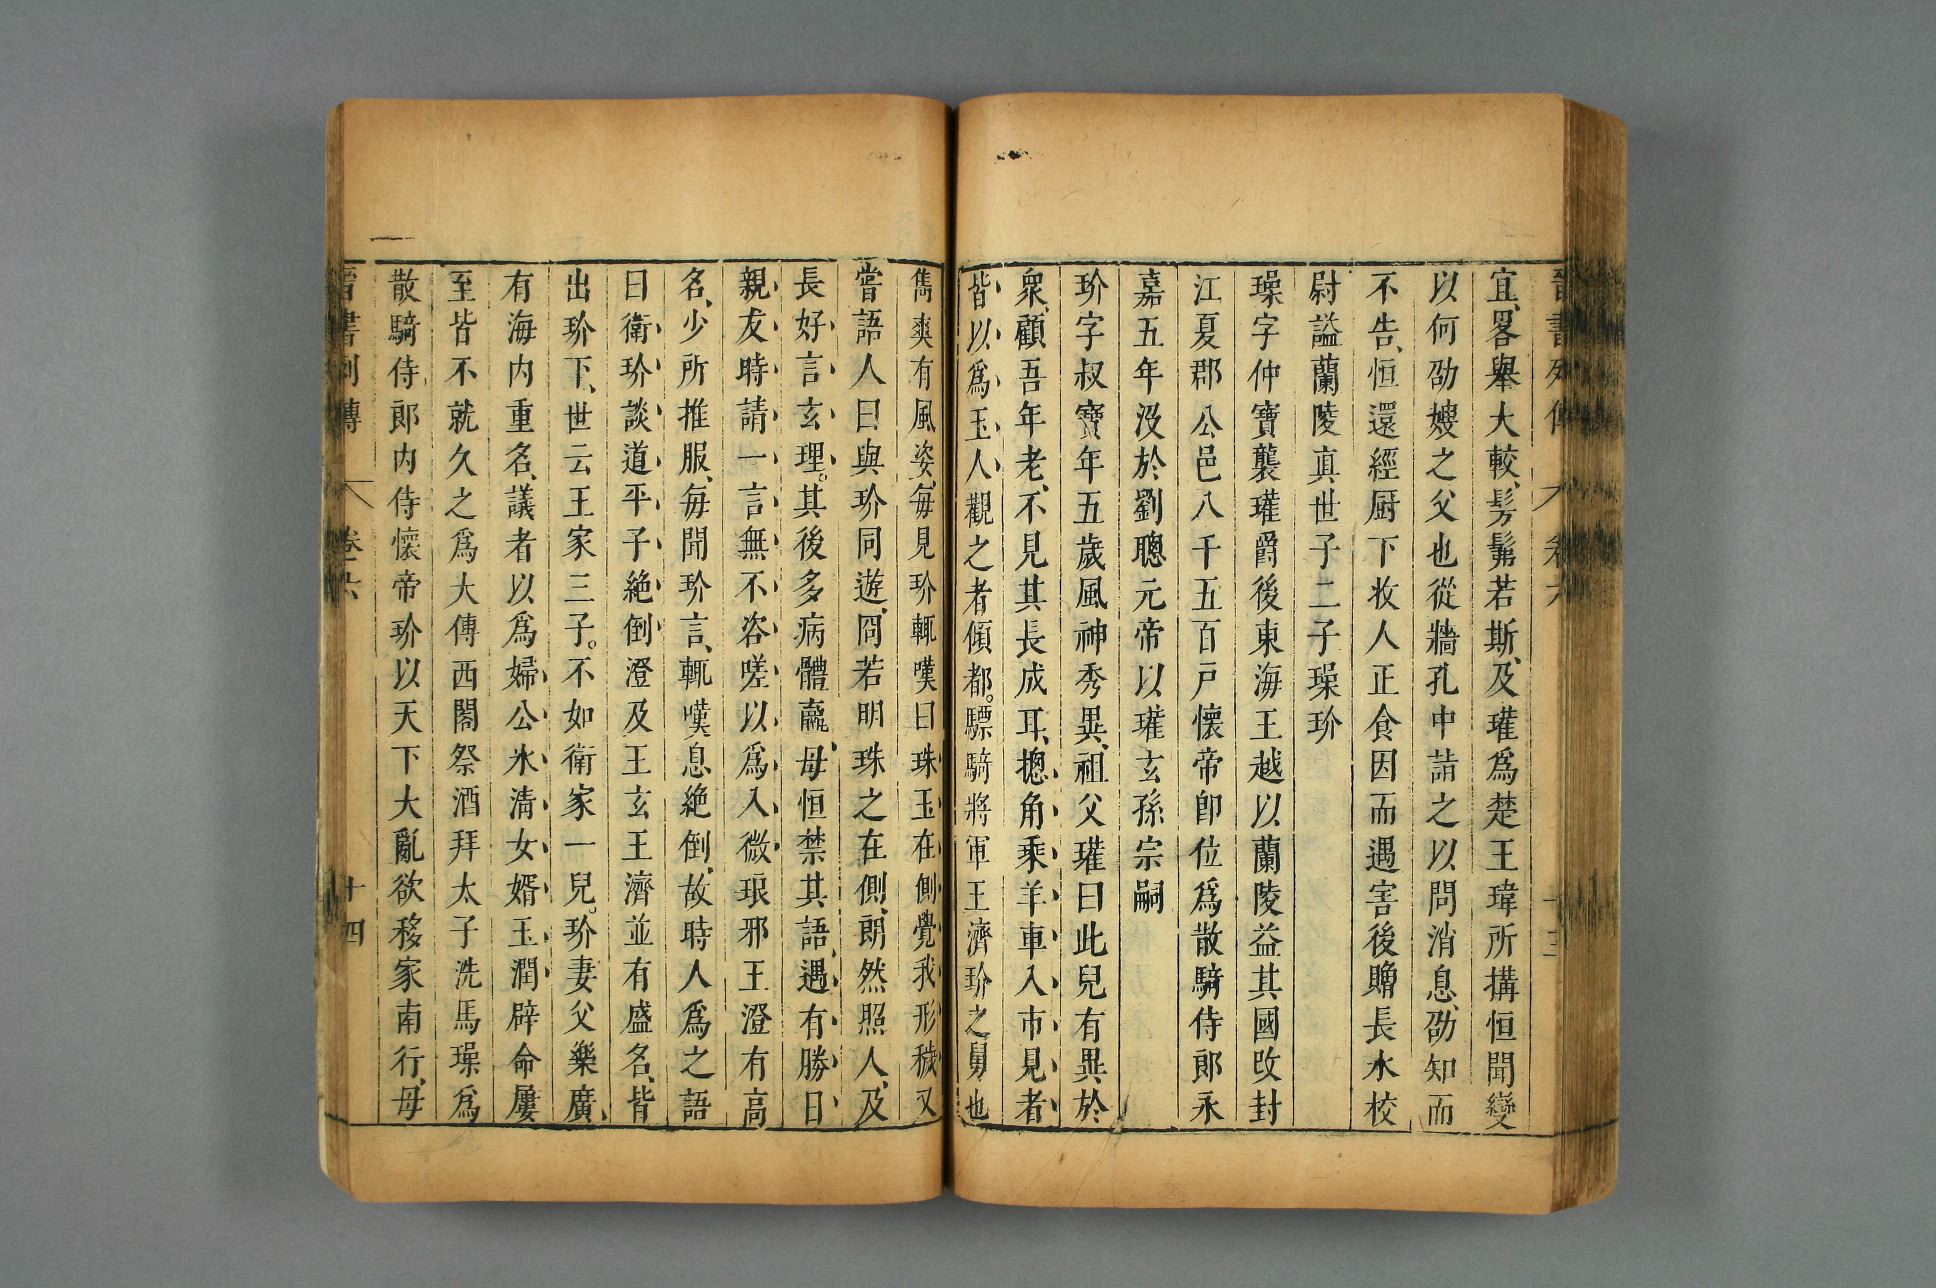 晉書列傳 卷六 十三
宜、畧舉大較、髣髴若斯、及瓘爲楚王瑋所搆恒聞變
以何劭嫂之父也從牆孔中詰之以問消息、劭知而
不告、恒還經厨下收人正食因而遇害後贈長水校
尉諡蘭陵眞世子二子璪玠
璪字仲寶襲瓘爵後東海王越以蘭陵益其國改封
江夏郡公邑八千五百戸懷帝卽位爲散騎侍郎永
嘉五年沒於劉聰元帝以瓘玄孫宗嗣
玠字叔寶年五歲風神秀異、祖父瓘曰此兒有異於
衆、顧吾年老、不見其長成耳、摠角乘羊車入市見者
皆以爲玉人觀之者傾都。驃騎將軍王濟玠之舅也
雋爽有風姿、每見玠輒嘆曰珠玉在側覺我形穢又
嘗語人曰與玠同遊、冏若明珠之在側、朗然照人、及
長好言玄理。其後多病體羸、母恒禁其語、遇有勝日
親友時請一言無不咨嗟以爲入微琅邪王澄有高
名、少所推服、每聞玠言、輒嘆息絶倒、故時人爲之語
曰衛玠談道平子絶倒澄及王玄王濟並有盛名、皆
出玠下、世云王家三子。不如衛家一兒。玠妻父樂廣、
有海内重名、議者以爲婦公氷清女婿玉潤辟命屢
至皆不就久之爲大傅西閤祭酒拜太子洗馬璪爲
散騎侍郎内侍懷帝玠以天下大亂欲移家南行、母
晉書列傳 卷六 十四